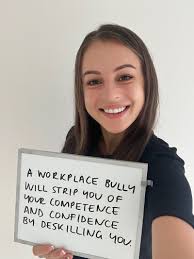 A WORKPLACE BULLY
WILL STRIP YOU OF
YOUR COMPETENCE
AND CONFIDENCE
BY DESKILLING YOU.